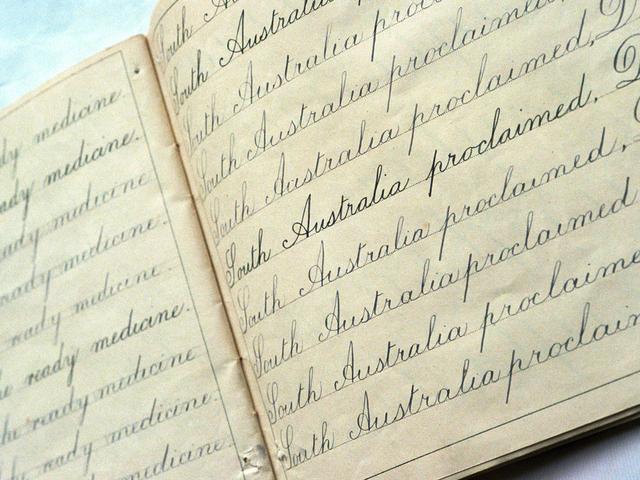 medicine.
medicine.
medicine
medicine.
ready medicine.
ready medicine.
ready medicine
ready medicine.
ready medicine.
South
South Australia
South Australia
South Australia proclaimed
South Australia proclaimed,
South Australia proclaimed.
South Australia proclaimed,
South Australia proclaimed
South Australia proclaime
South Australia proclaim